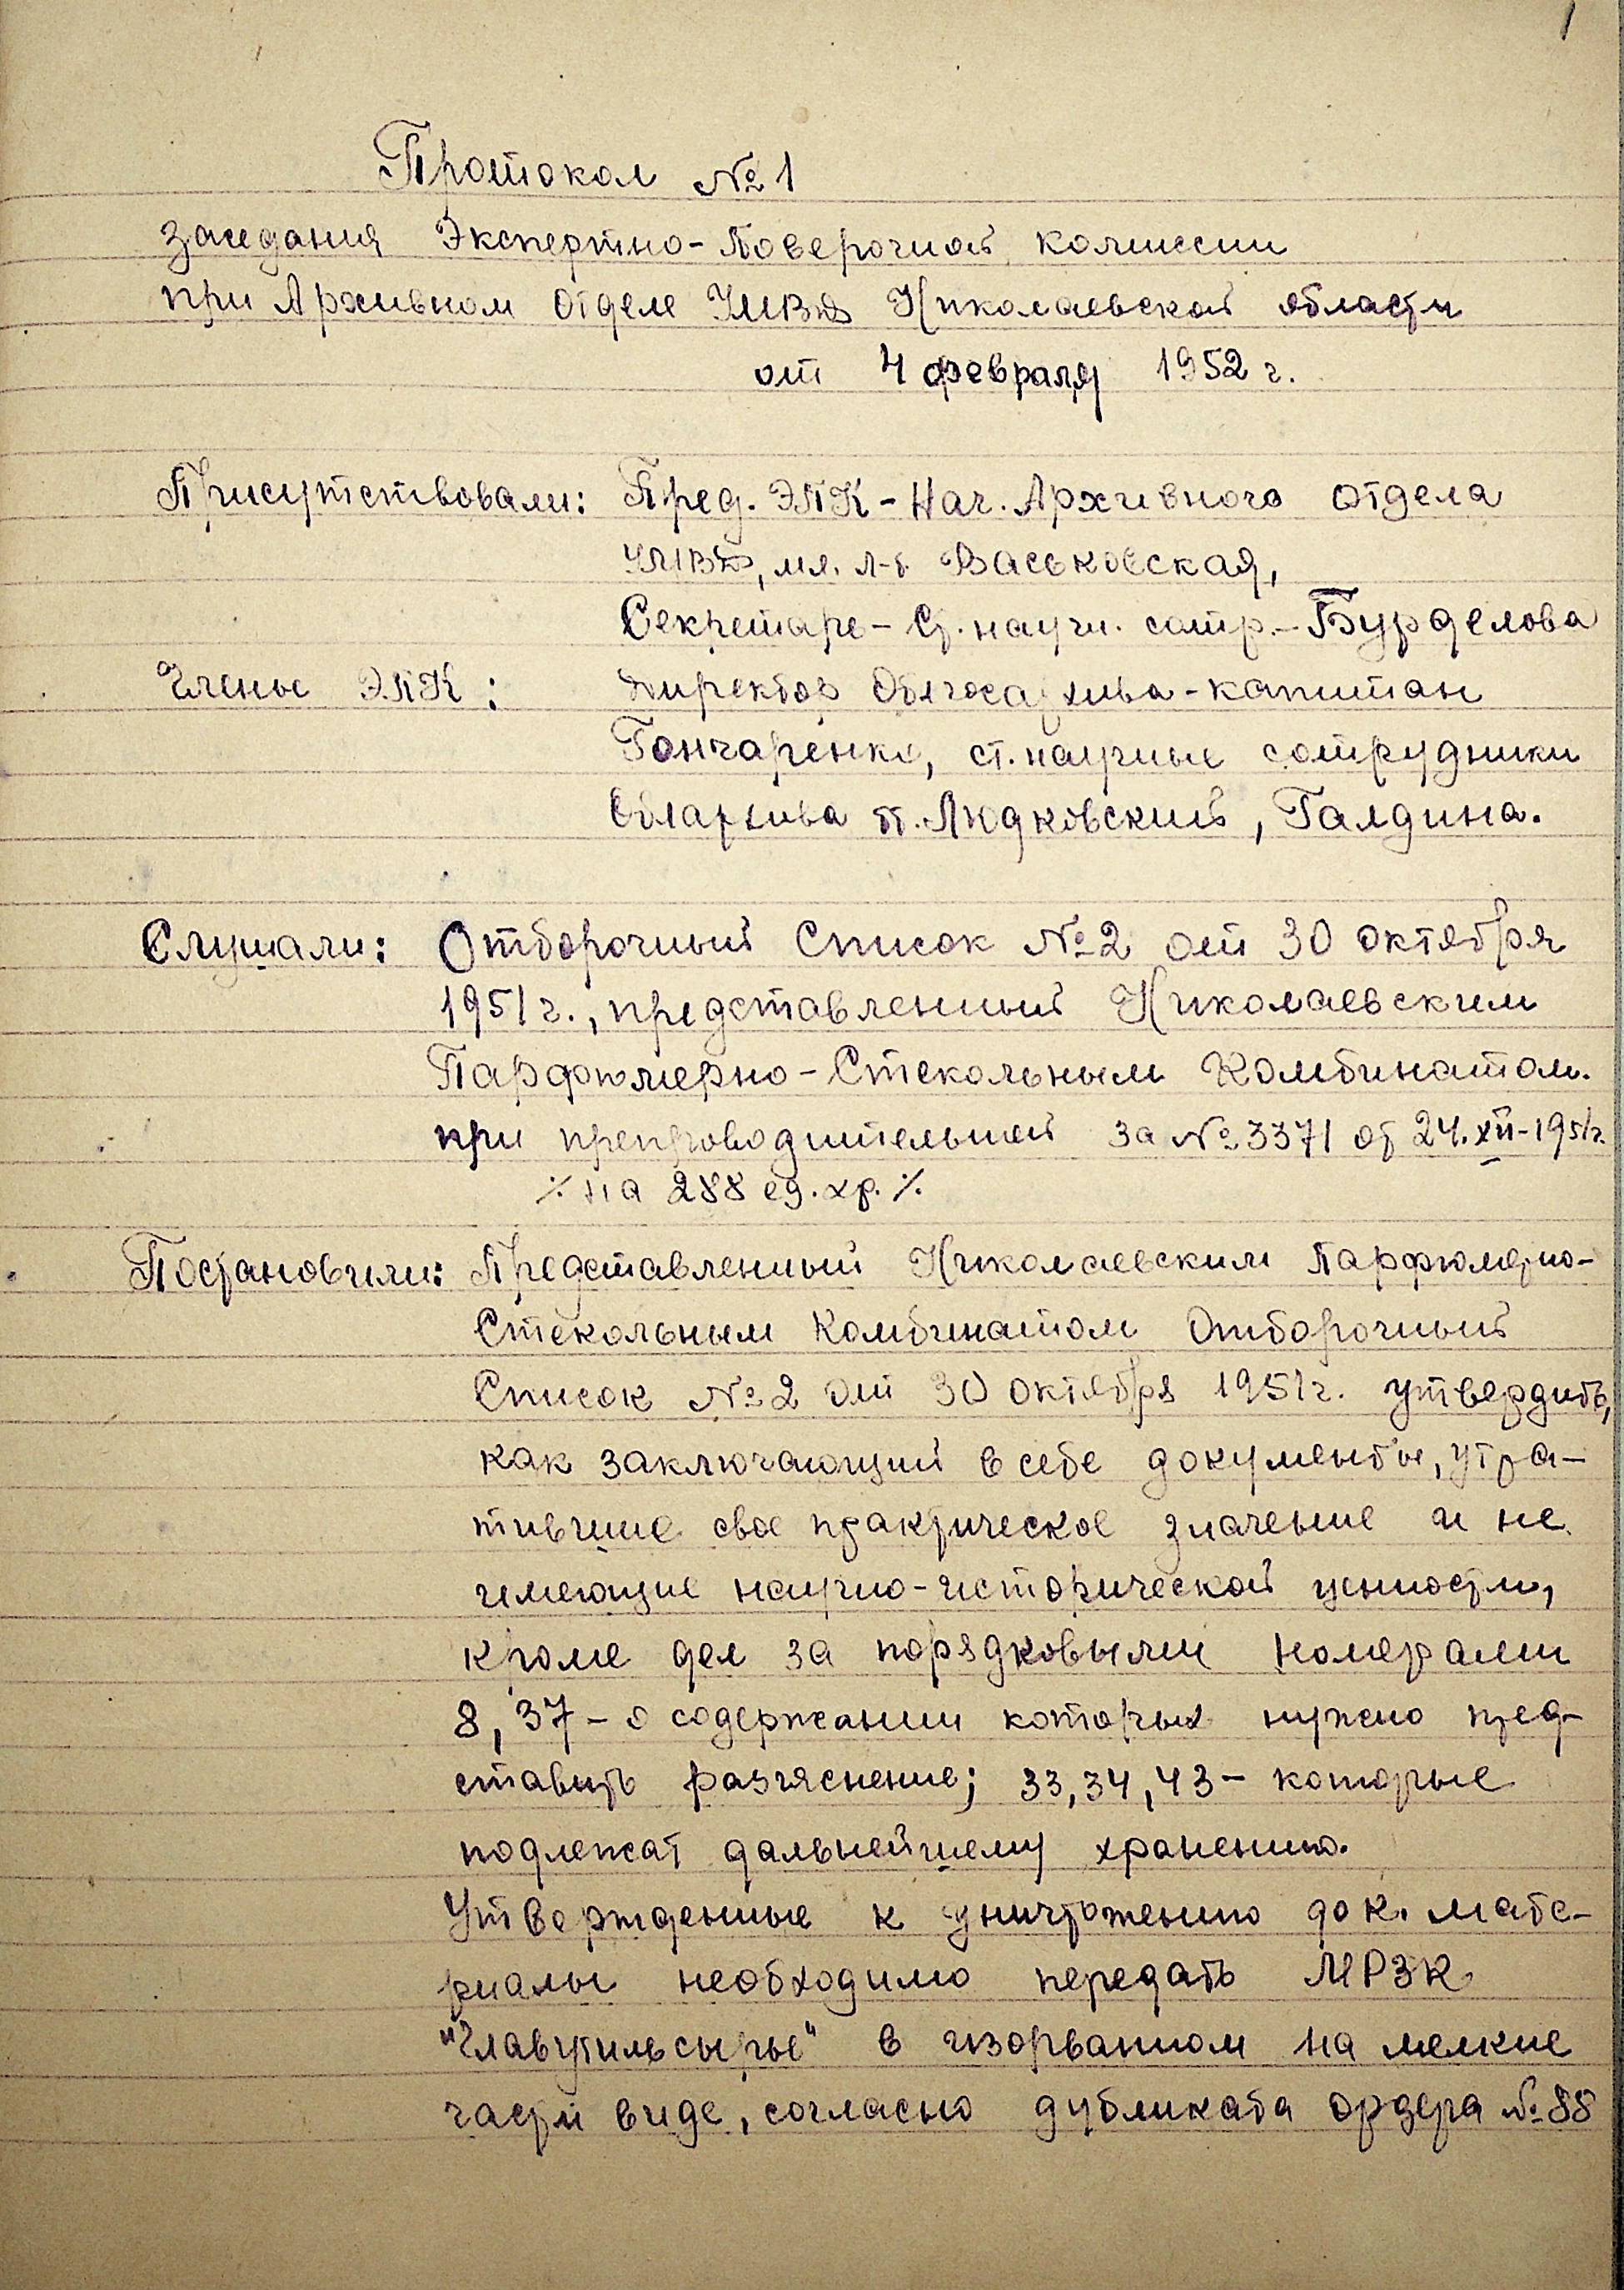 1
Протокол № 1
заседания Экспертно-Поверочной комиссии
при Архивном Отделе УМВД Николаевской области
от 4 февраля 1952 г.
Присутствовали: Пред. ЭПК - Нач. Архивного отдела
УМВД, мл. л-т Васьковская,
Секретарь - Ст. научн. сотр. - Бурделова
Члены ЭПК: Директор Облгосархива - капитан
Гончаренко, ст. научные сотрудники
Облархива т.т. Людковский, Галдина.
Слушали: Отборочный Список № 2 от 30 октября
1951 г., представленный Николаевским
Парфюмерно-Стекольным Комбинатом.
при препроводительной за № 3371 от 24.XII-1951г.
⁒ на 288 ед. хр. ⁒
Постановили: Представленный Николаевским Парфюмерно-
Стекольным Комбинатом Отборочный
Список № 2 от 30 октября 1951г. утвердить,
как заключающий в себе документы, утра-
тившие свое практическое значение и не
имеющие научно-исторической ценности,
кроме дел за порядковыми номерами
8, 37 - о содержании которых нужно пред-
ставить разъяснение; 33, 34, 43 - которые
подлежат дальнейшему хранению.
Утвержденные к уничтожению док. мате-
риалы необходимо передать МРЗК
"Главутильсырье" в изорванном на мелкие
части виде, согласно дубликата ордера № 88